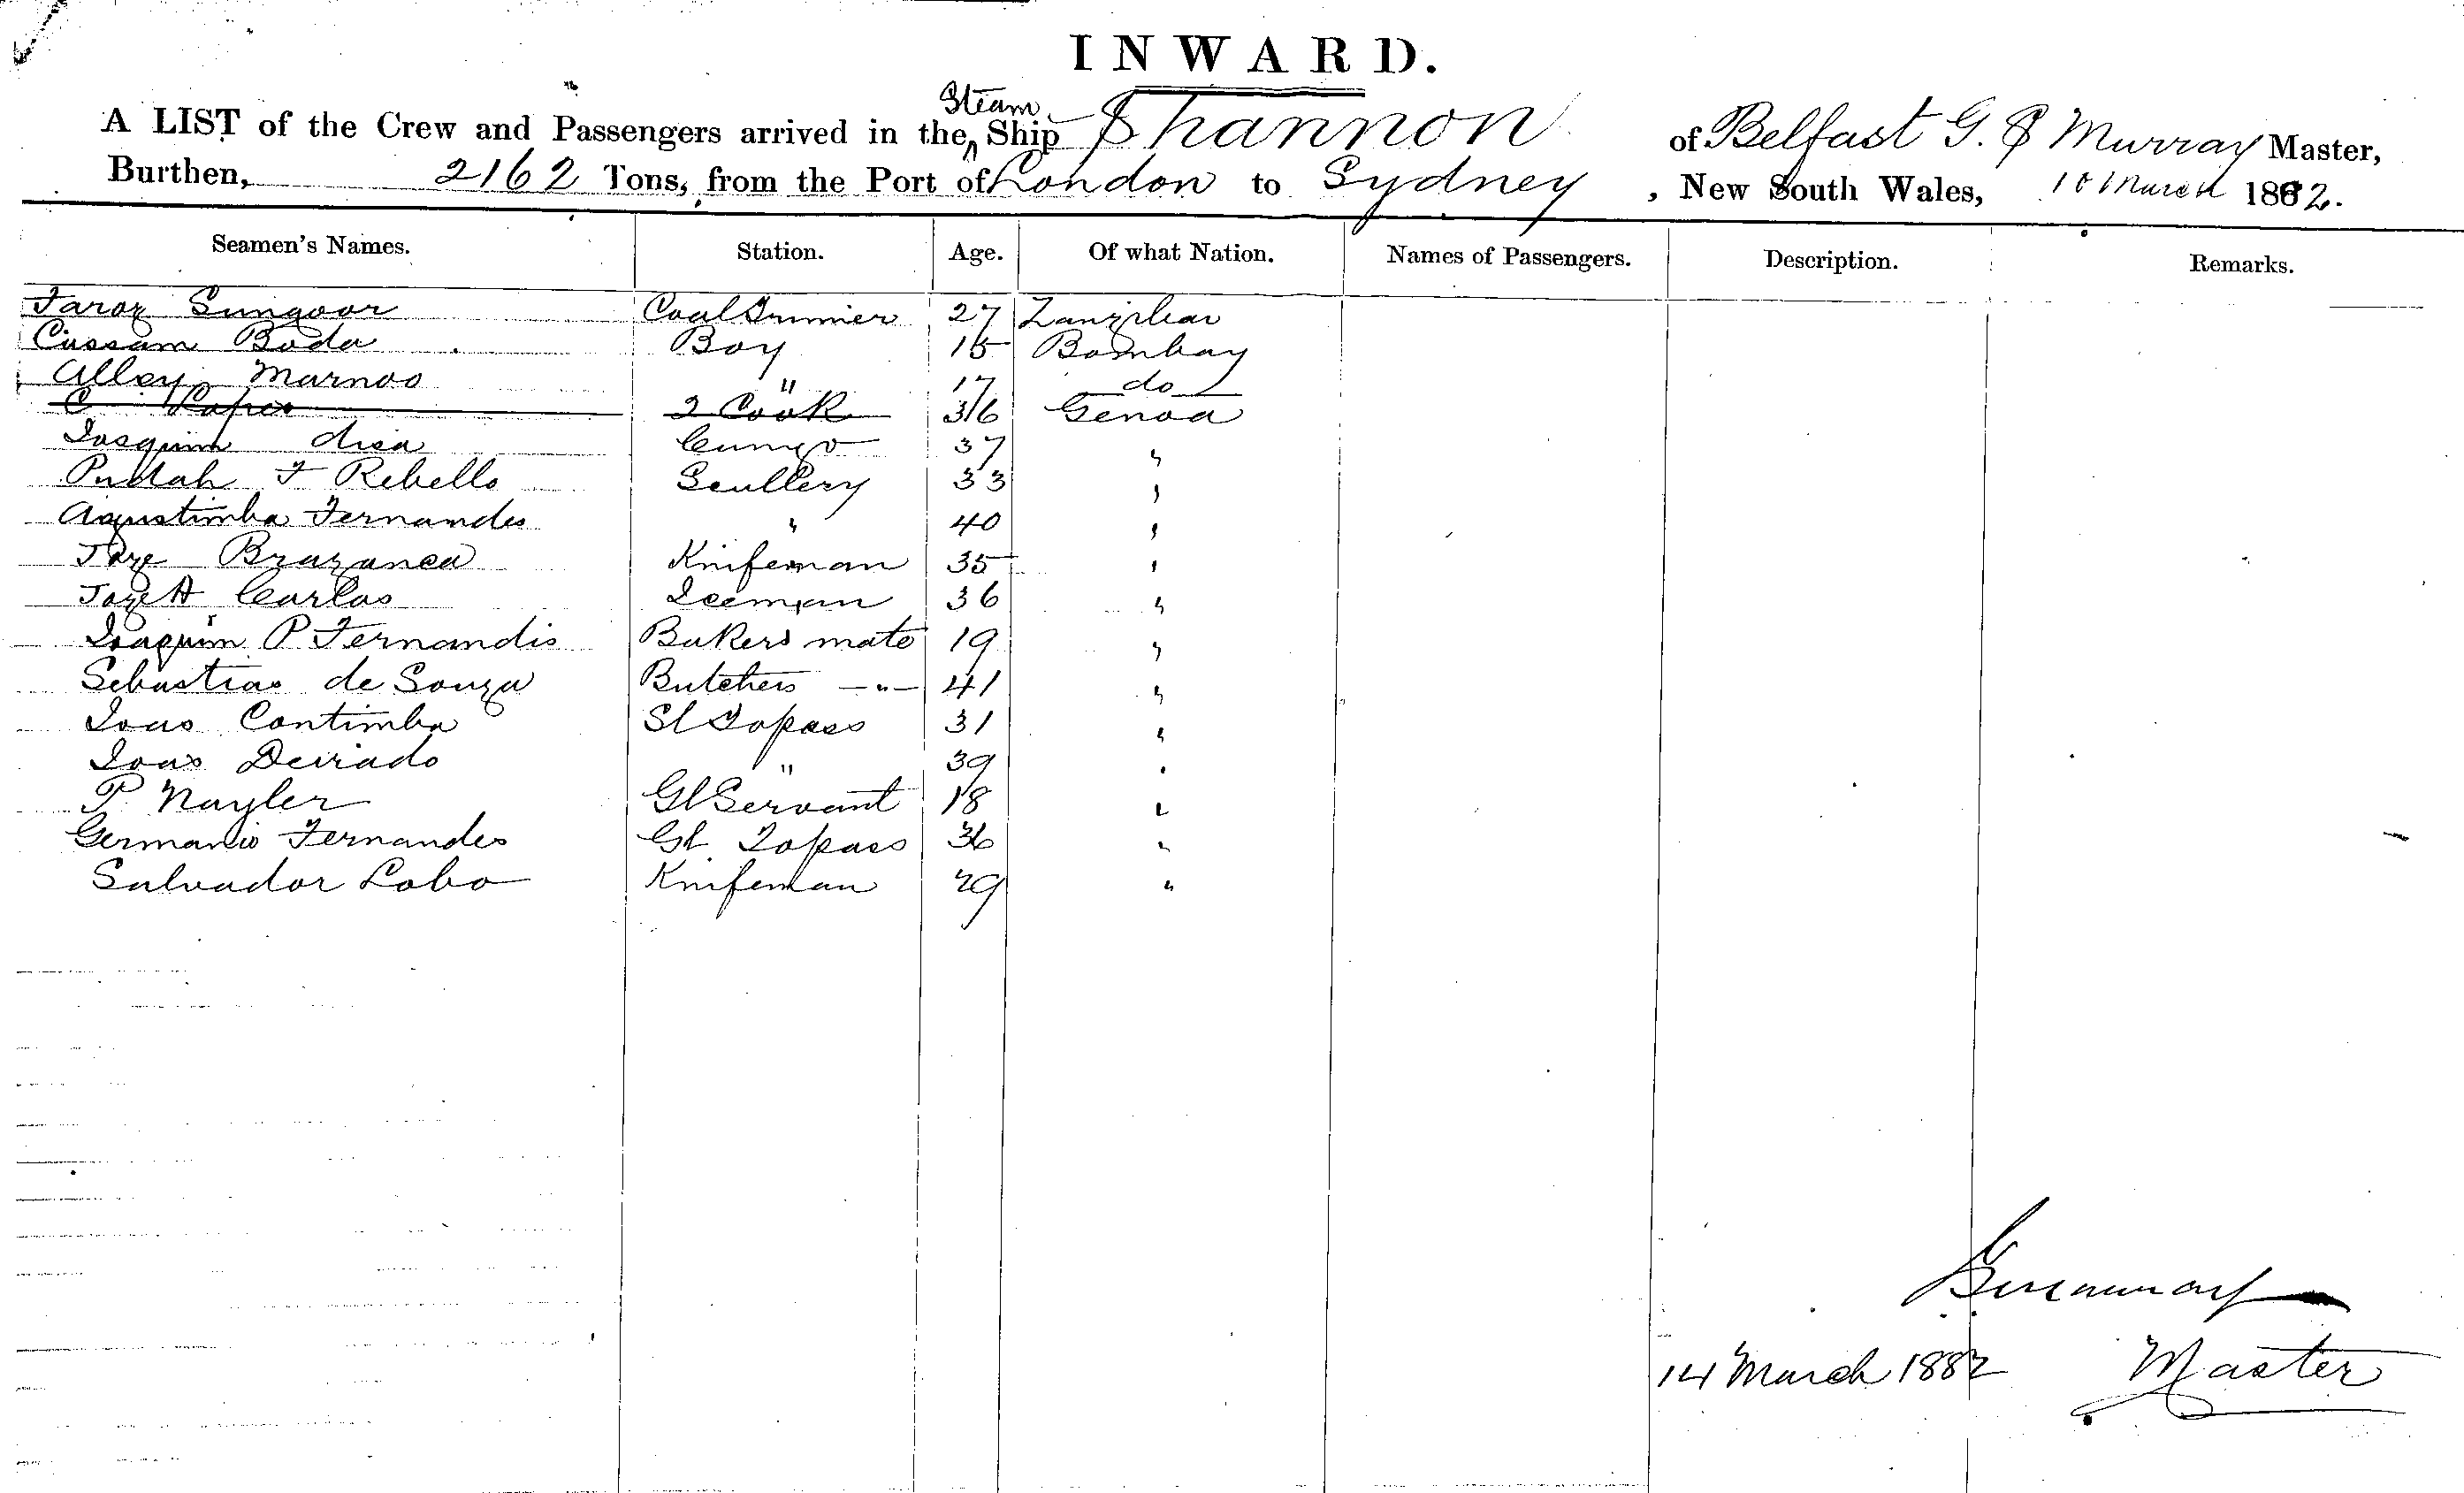 INWARD.
A LIST of the Crew and Passengers arrived in the Steam Ship Shannon of Belfast G. S Murray Master,
Burthen, 2162 Tons, from the Port of London to Sydney, New South Wales, March 1882.
Seamen's Names. Station. Age. Of what Nation. Names of Passengers. Description. Remarks.
Faroz Sungoor Coal Trimmer 27 Zanzibar
Cassam Boda Boy 15 Bombay
Alley Marnoo " 17 do
C Lopes 2 Cook 36 Genoa
Joaquim 37 "
F Rebello Scullery 33 "
Agustimba Fernandes " 40 "
Joze Brazanca Knifeman 35 "
Joze A Carlos Iceman 36 "
Joaquim P Fernandis Bakers mate 19 "
Sebastiao de Souza Butchers —"— 41 "
Joao Contimba Sl Topass 31 "
Joao 39 "
P. Nayler Gl Servant 18 "
Fernandes Gl Topass 36 "
Salvador Lobo Knifeman 29 "
14 March 1882 Master